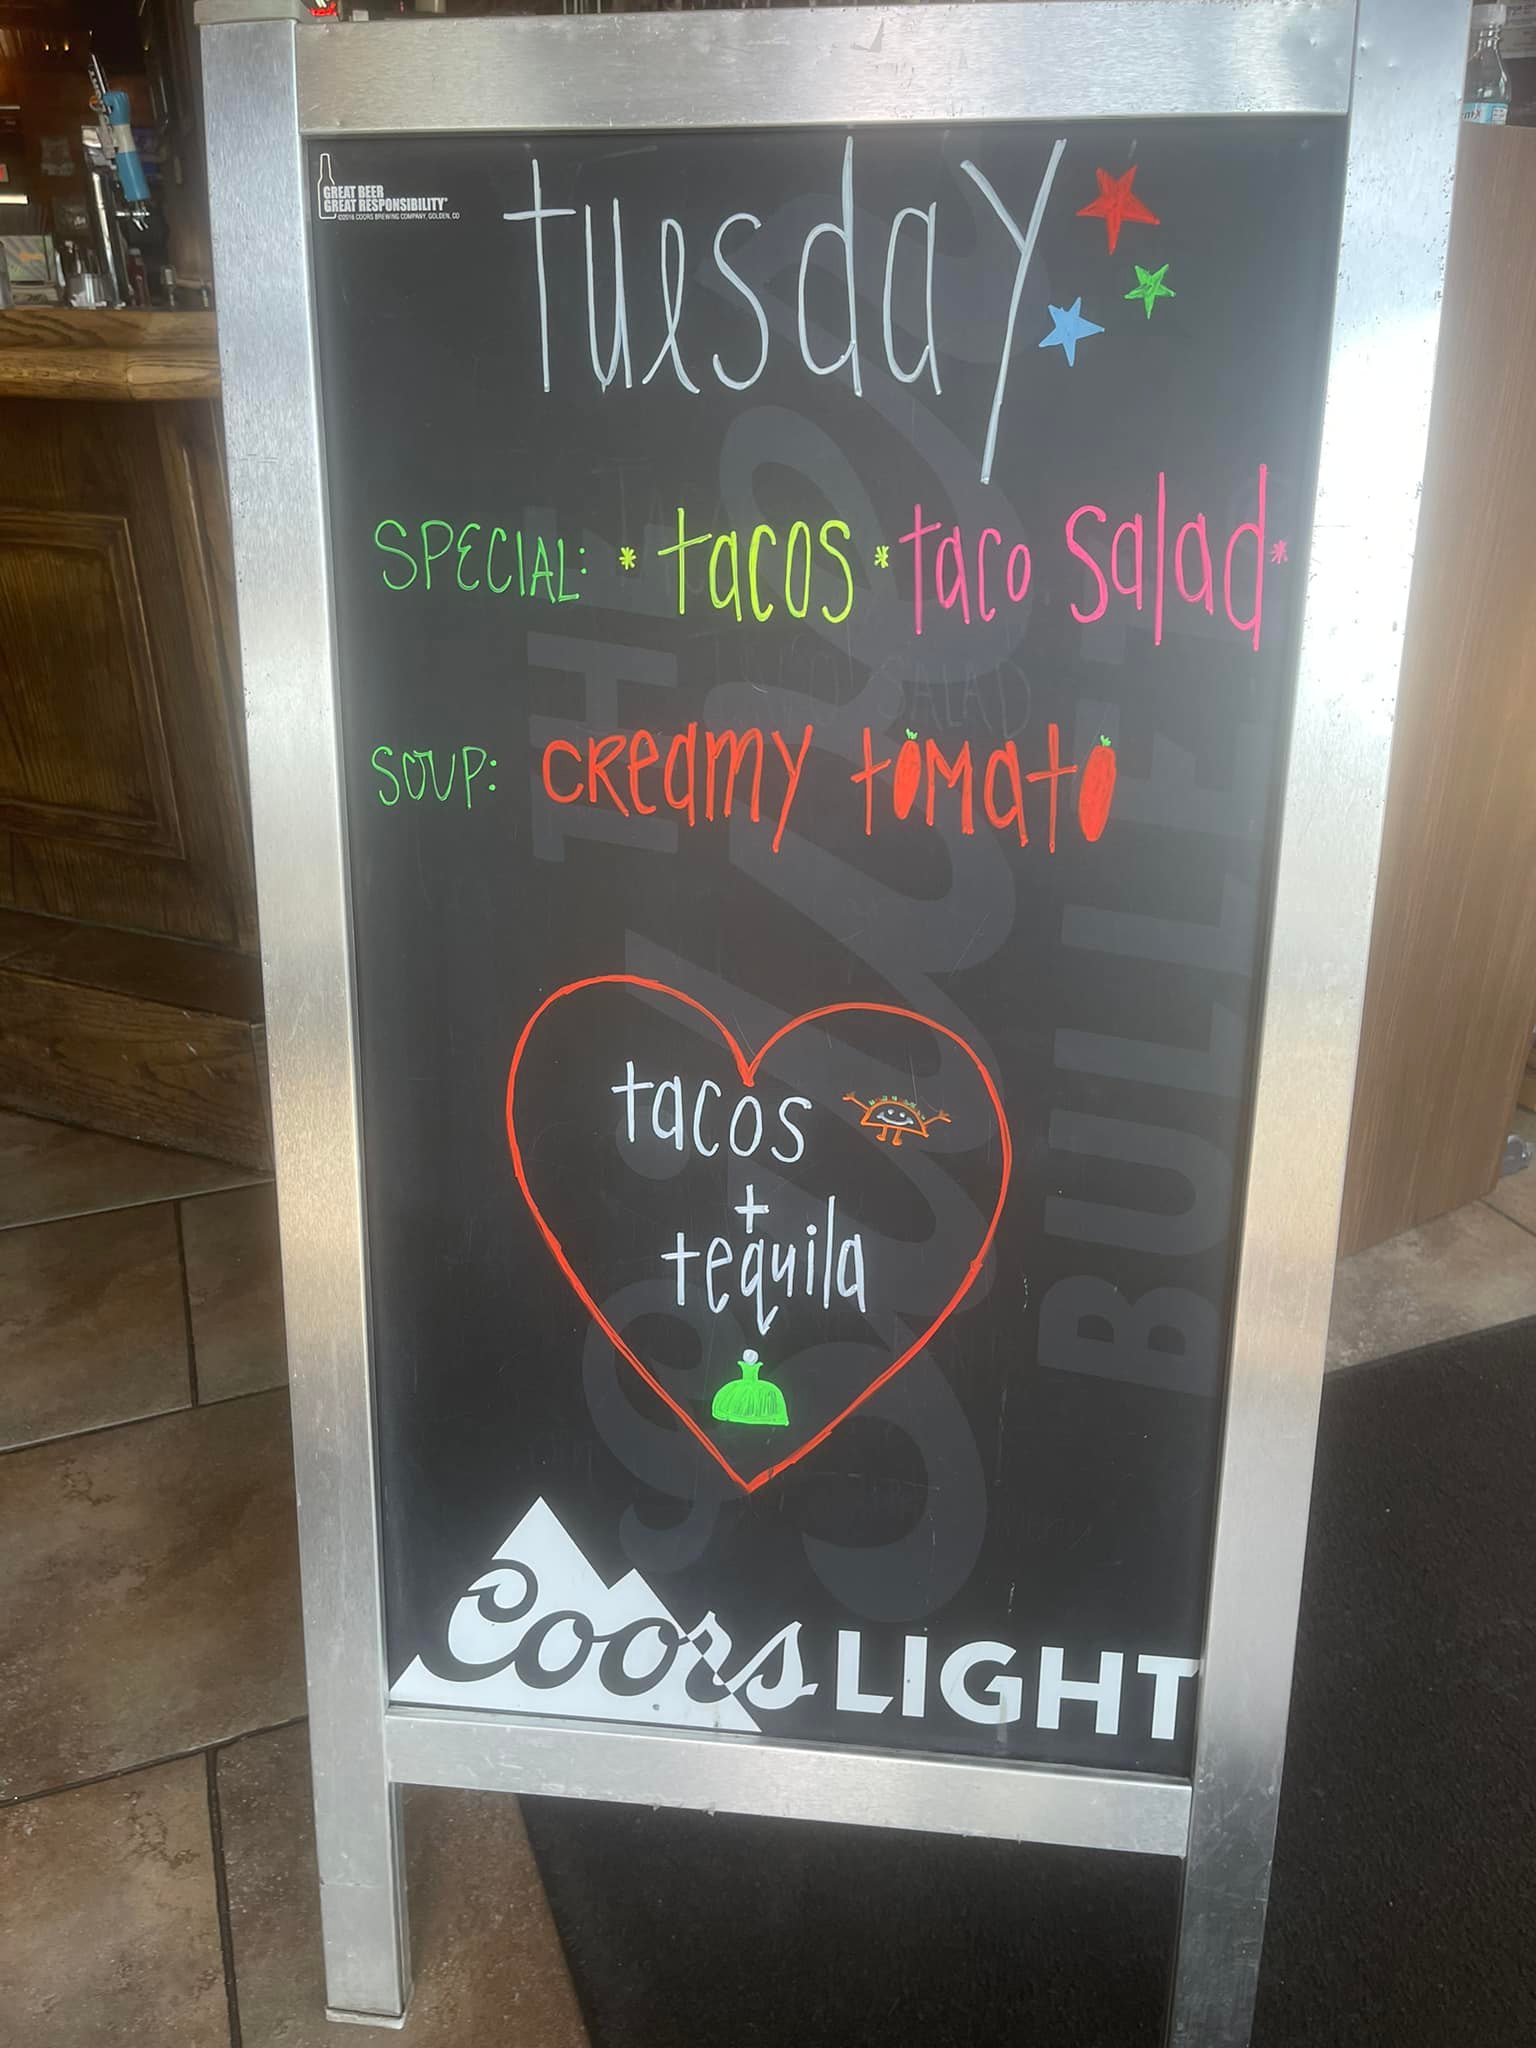 GREAT BEER
GREAT RESPONSIBILITY®
©2016 COORS BREWING COMPANY, GOLDEN, CO
tuesday
SPECIAL: * tacos * taco salad *
SOUP: creamy tomato
tacos
+
tequila
THE
Silver
BULLET
Coors LIGHT